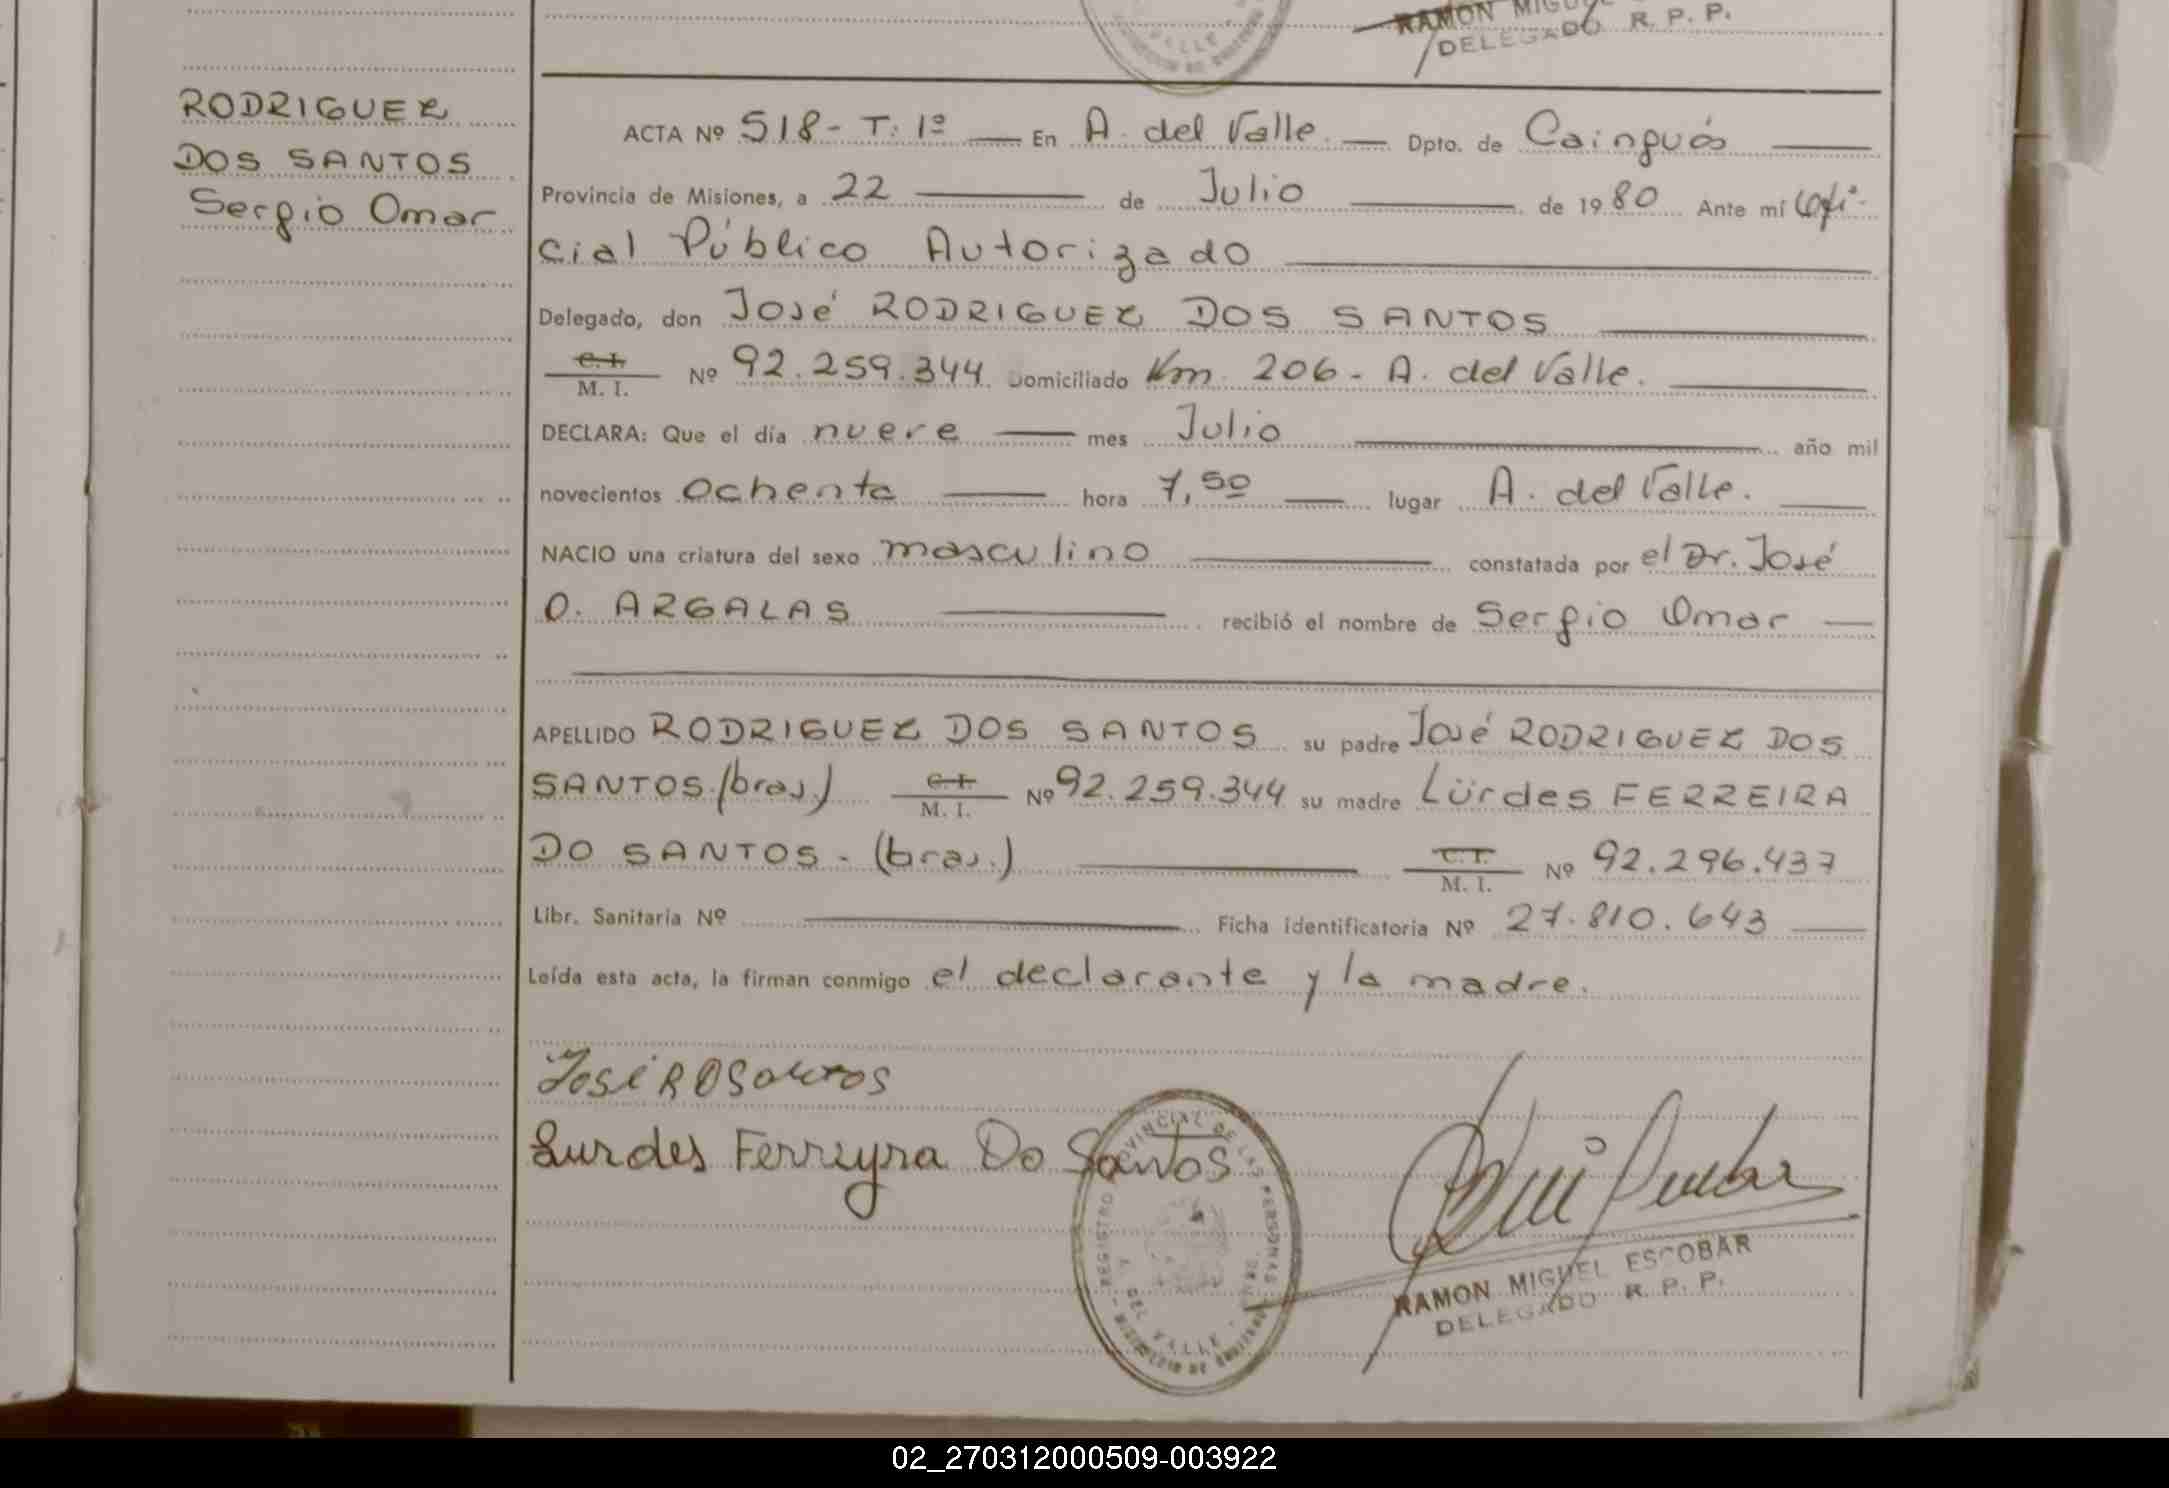 RAMON MIGU
DELEGADO R. P. P.
RODRIGUEZ
DOS SANTOS
Sergio Omar
ACTA Nº 518 - T: 1º — En A. del Valle. — Dpto. de Cainguás —
Provincia de Misiones, a 22 — de Julio — de 1980 Ante mí Ofi-
cial Público Autorizado —
Delegado, don José RODRIGUEZ DOS SANTOS —
C. I.
M. I. Nº 92.259.344 Domiciliado Km. 206 - A. del Valle. —
DECLARA: Que el día nueve — mes Julio — año mil
novecientos ochenta — hora 7,50 — lugar A. del Valle. —
NACIO una criatura del sexo masculino — constatada por el Dr. José
O. ARGALAS — recibió el nombre de Sergio Omar —
APELLIDO RODRIGUEZ DOS SANTOS su padre José RODRIGUEZ DOS
SANTOS.(bras.) C. I. M. I. Nº 92.259.344 su madre Lürdes FERREIRA
DO SANTOS - (bras.) — C. I. M. I. Nº 92.296.437
Libr. Sanitaria Nº — Ficha identificatoria Nº 27.810.643 —
Leída esta acta, la firman conmigo el declarante y la madre.
José R D Santos
Lurdes Ferreyra Do Santos
REGISTRO PROVINCIAL DE LAS PERSONAS
A. DEL VALLE
RAMON MIGUEL ESCOBAR
DELEGADO R. P. P.
02_270312000509-003922